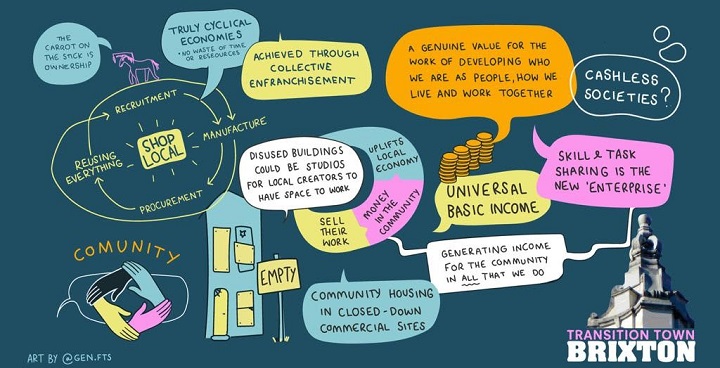 THE
CARROT ON
THE STICK IS
OWNERSHIP
TRULY CYCLICAL
ECONOMIES
*NO WASTE OF TIME
OR RESSOURCES
ACHIEVED THROUGH
COLLECTIVE
ENFRANCHISEMENT
A GENUINE VALUE FOR THE
WORK OF DEVELOPING WHO
WE ARE AS PEOPLE, HOW WE
LIVE AND WORK TOGETHER
CASHLESS
SOCIETIES?
RECRUITMENT
MANUFACTURE
PROCUREMENT
REUSING
EVERYTHING
SHOP
LOCAL
DISUSED BUILDINGS
COULD BE STUDIOS
FOR LOCAL CREATORS TO
HAVE SPACE TO WORK
UPLIFTS
LOCAL
ECONOMY
MONEY
IN THE
COMMUNITY
SELL
THEIR
WORK
UNIVERSAL
BASIC INCOME
SKILL & TASK
SHARING IS THE
NEW 'ENTERPRISE'
GENERATING INCOME
FOR THE COMMUNITY
IN ALL THAT WE DO
COMUNITY
EMPTY
COMMUNITY HOUSING
IN CLOSED-DOWN
COMMERCIAL SITES
TRANSITION TOWN
BRIXTON
ART BY @GEN.FTS